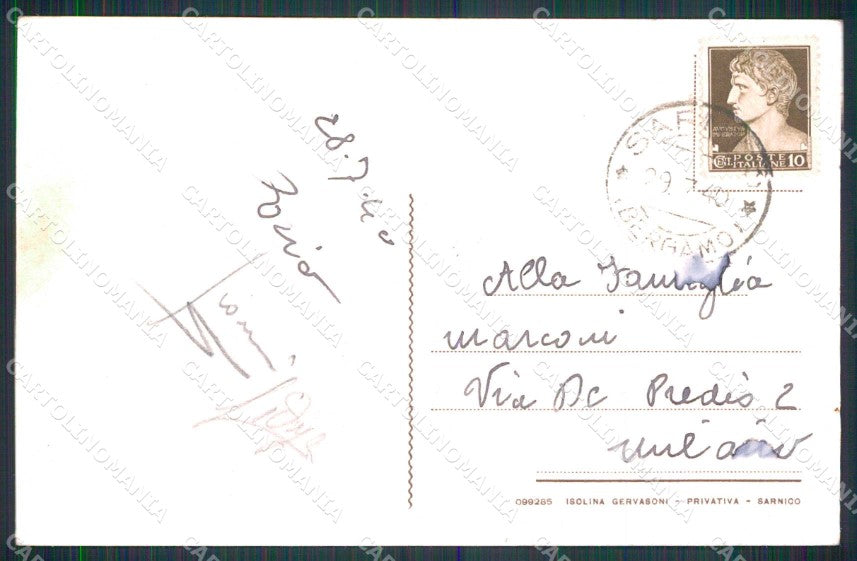 28.7.40
AVGVSTVS
CENT. POSTE ITALIANE 10
SARNICO
29.7.40
(BERGAMO)
Alla Famiglia
Marconi
Via De Predis 2
Milano
099285 ISOLINA GERVASONI - PRIVATIVA - SARNICO
CARTOLINOMANIA